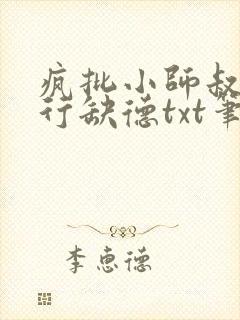 疯批小师叔
行缺德txt笔
李惠德